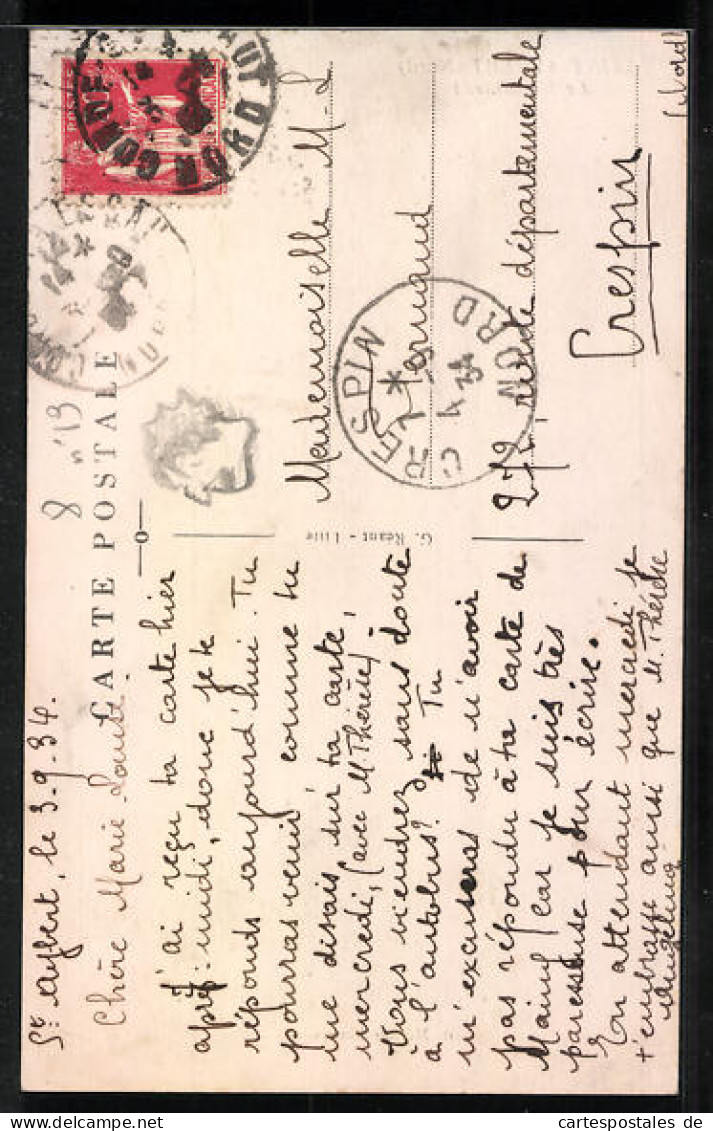 St Aybert, le 3.9.34.
Chère Marie Louise.
J'ai reçu ta carte hier
après-midi, donc je te
réponds aujourd'hui. Tu
pourras venir comme tu
me disais sur ta carte,
mercredi, (avec M Thérèse),
Vous viendrez sans doute
à l'autobus? Tu
m'excuseras de n'avoir
pas répondu à ta carte de
car je suis très
paresseuse pour écrire.
En attendant mercredi je
t'embrasse ainsi que M. Thérèse
CARTE POSTALE
8 n°13
G. Réant - Lille
POSTES
NORD
CRESPIN
4 9
34
NORD
Mademoiselle M-L
272, route départementale
Crespin
(Nord)
cartespostales de